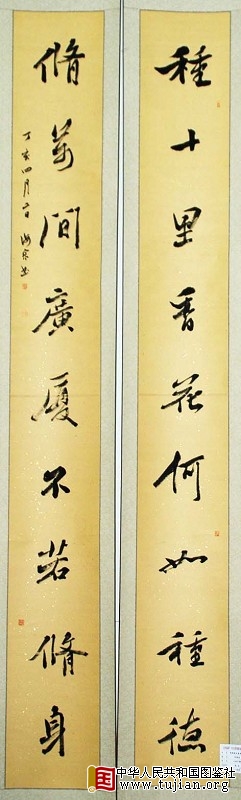 種十里香花何如種德
脩萬間廣厦不若脩身
丁亥四月六日
国 中华人民共和国图鉴社
www.tujian.org